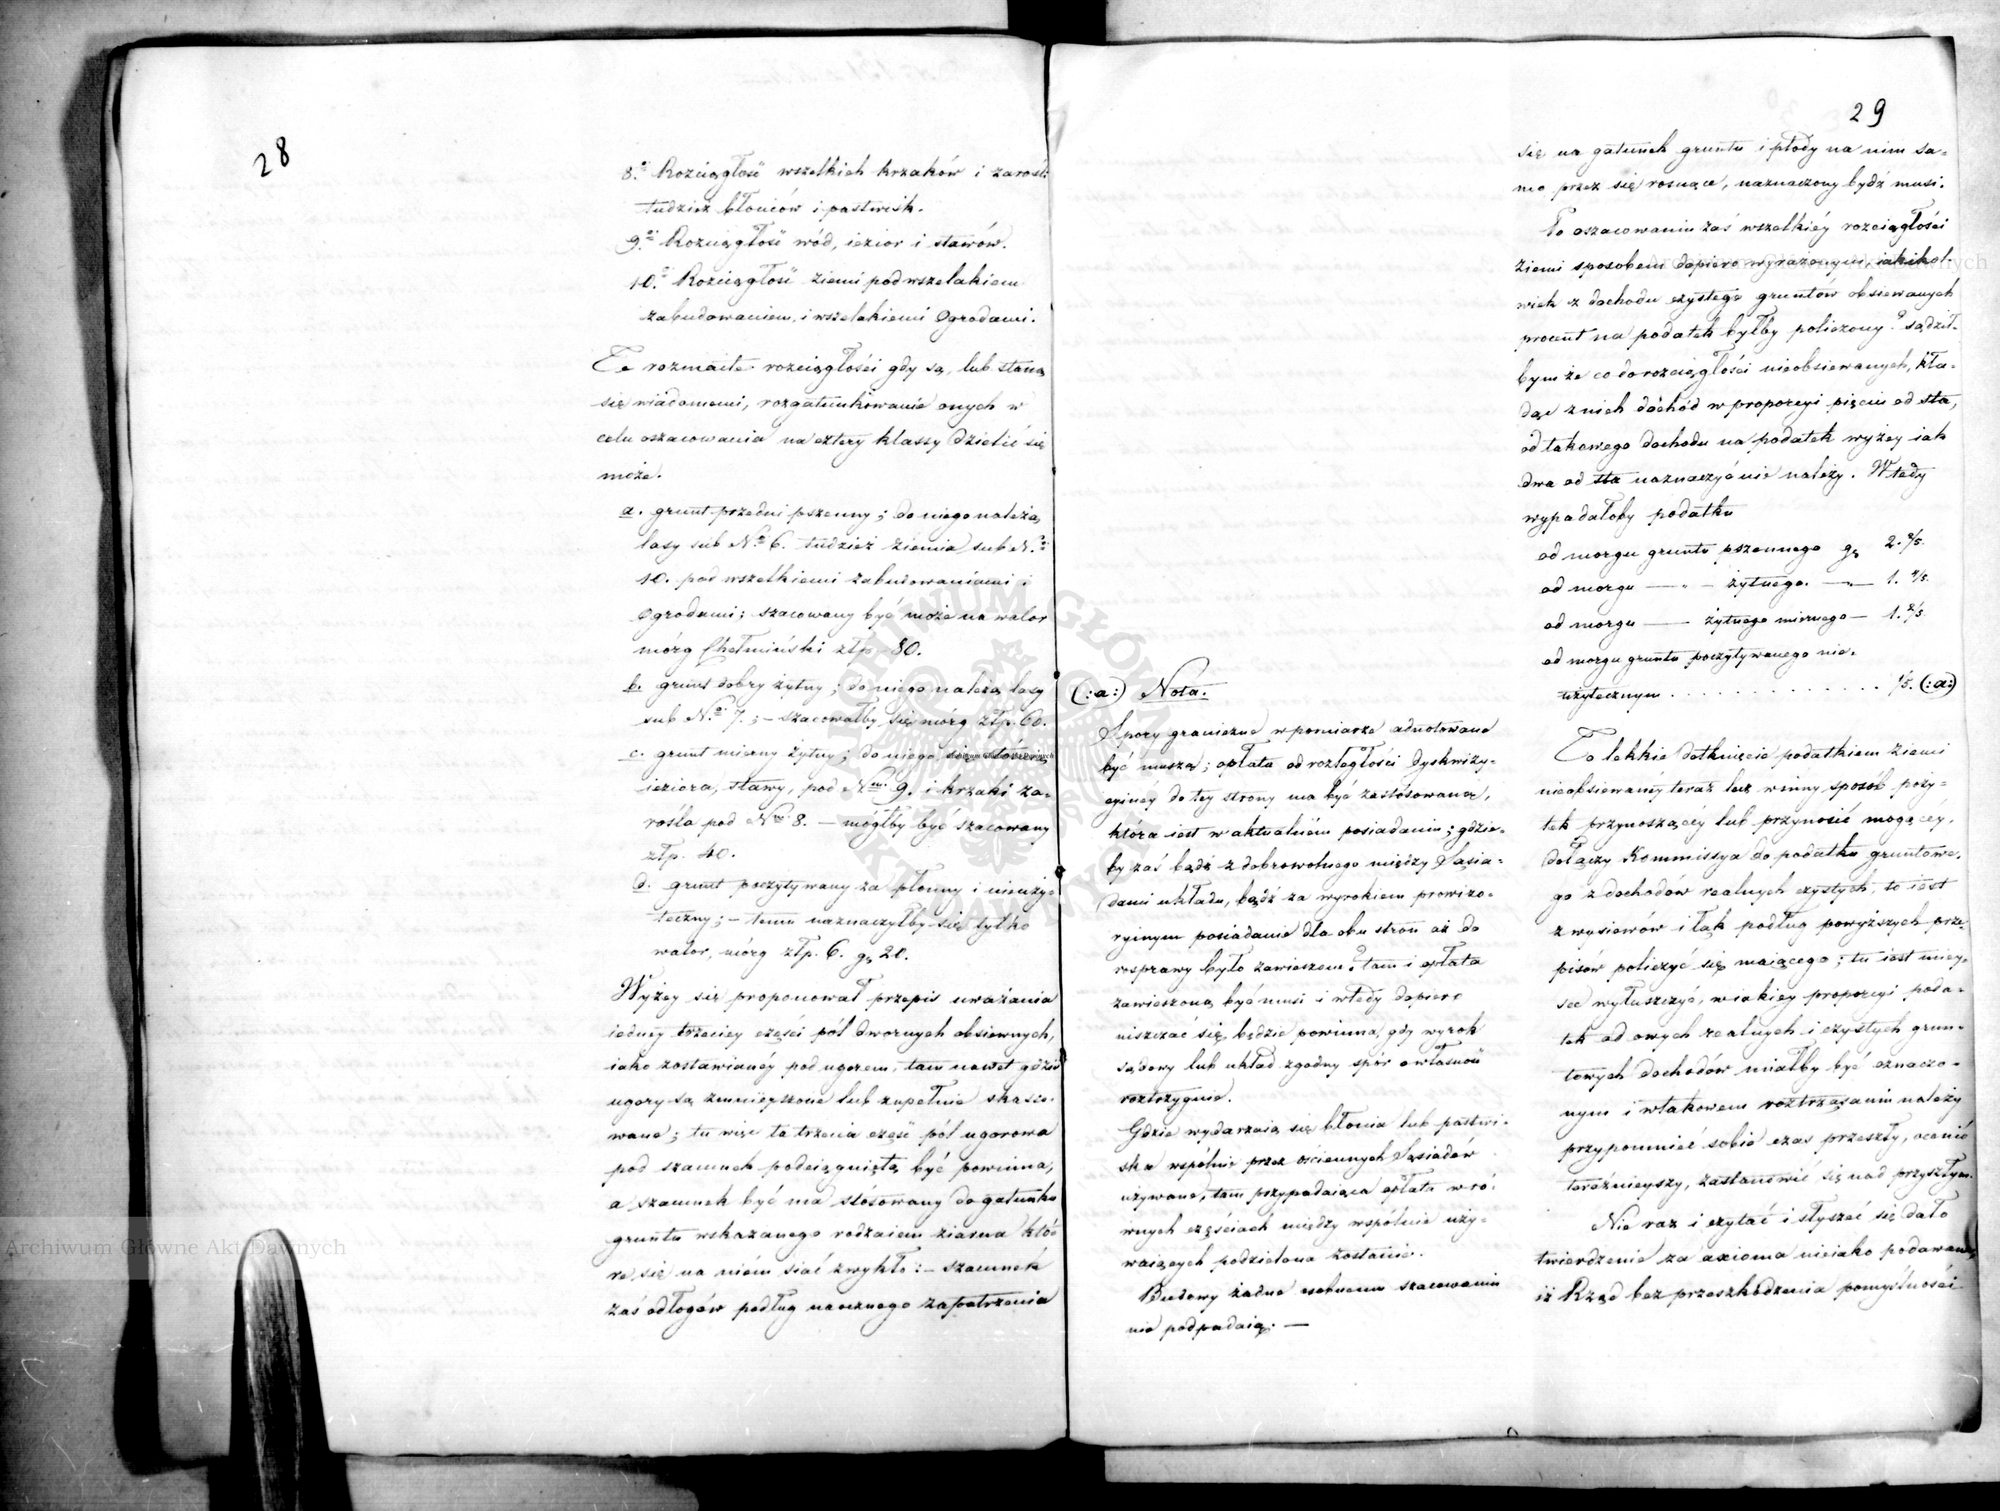 28
8.o Rozciągłość wszelkich krzaków i zarośli
tudzież błoniów i pastwisk.
9.o Rozciągłość wód, iezior i stawów.
10.o Rozciągłość ziemi pod wszelakiem
zabudowaniem, i wszelakiemi Ogrodami.
Te rozmaite rozciągłości gdy są, lub staną
się wiadomemi, rozgatunkowanie onych w
celu oszacowania na cztery klassy dzielić się
może.
a. grunt przedni pszenny; do niego należą
lasy sub No 6. tudzież ziemia sub No
10. pod wszelkiemi zabudowaniami i
Ogrodami; szacowany być może na walor
mórg Chełmiński złp 80.
b. grunt dobry żytny; do niego należą lasy
sub No 7.; – szacowałby się mórg złp. 60.
c. grunt mierny żytny; do niego
ieziora, stawy, pod Nrm 9. i krzaki za-
rośla pod Nrm 8. – mógłby być szacowany
złp. 40.
d. grunt poczytywany za płonny i nieuży-
teczny; – temu naznaczyłby się tylko
walor, mórg złp. 6. gr 20.
Wyżey się proponował przepis uważania
iedney trzeciey części pól dwornych obsiewnych,
iako zostawianéy pod ugorem, tam nawet gdzie
ugory są zmnieyszone lub zupełnie skaso-
wane; tu więc ta trzecia część pól ugorowa
pod szacunek podciągnięta być powinna,
a szacunek być ma stósowany do gatunku
gruntu wskazanego rodzaiem ziarna któ-
re się na niém siać zwykło: – szacunek
zaś odłogów podług naocznego zapatrzenia
29
się na gatunek gruntu i płody na nim sa-
mo przez się rosnące, naznaczony bydź musi.
Po oszacowaniu zaś wszelkiéy rozciągłości
ziemi sposobem dopiero wyrażonym, iakikol-
wiek z dochodu czystego gruntów obsiewanych
procent na podatek byłby policzony? sądził-
bym że co do rozciągłości nieobsiewanych, kła-
dąc z nich dochód w proporcyi pięciu od sta,
od takowego dochodu na podatek wyżey iak
dwa od sta naznaczyć nie należy. Wtedy
wypadałoby podatku
od morgu gruntu pszennego gr 2. 2/5.
od morgu — „ — żytnego. — „ — 1. 4/5.
od morgu — żytnego miernego — 1. 1/5.
od morgu gruntu poczytywanego nie-
użytecznym . . . . . . . . . . . . . 1/5. (:a:)
To lekkie dotknięcie podatkiem ziemi
nieobsiewanéy teraz lecz w inny sposób poży-
tek przynoszącéy lub przynosić mogącéy,
dołączy Kommissya do podatku gruntowe-
go z dochodów realnych czystych, to iest
z wysiewów i łąk podług powyższych prze-
pisów policzyć się maiącego; tu iest miey-
sce wyłuszczyć, w iakiey proporcyi poda-
tek od owych realnych i czystych grun-
towych dochodów miałby być oznaczo-
nym i w takowem roztrząsaniu należy
przypomnieć sobie czas przeszły, ocenić
teraźnieyszy, zastanowić się nad przyszłym.
Nie raz i czytać i słyszeć się dało
twierdzenie za axioma nieiako podawane,
iż Rząd bez przeszkodzenia pomyślności
(:a:) Nota.
Spory graniczne w pomiarze adnotowane
być muszą; opłata od rozległości dyskwizy-
cyiney do tey strony ma być zastósowana,
która iest w aktualném posiadaniu; gdzie-
by zaś bądź z dobrowolnego między Sąsia-
dami układu, bądź za wyrokiem prowizo-
ryinym posiadanie dla obu stron aż do
rosprawy było zawieszone? tam i opłata
zawieszoną być musi i wtedy dopiero
uiszczać się będzie powinna, gdy wyrok
sądowy lub układ zgodny spór o własność
roztrzygnie.
Gdzie wydarzaią się błonia lub pastwi-
ska wspólnie przez ościennych Sąsiadów
używane, tam przypadaiąca opłata w ró-
wnych częściach między wspólnie uży-
waiących podzielona zostanie.
Budowy żadne osobnemu szacowaniu
nie podpadaią. —
Archiwum Główne Akt Dawnych